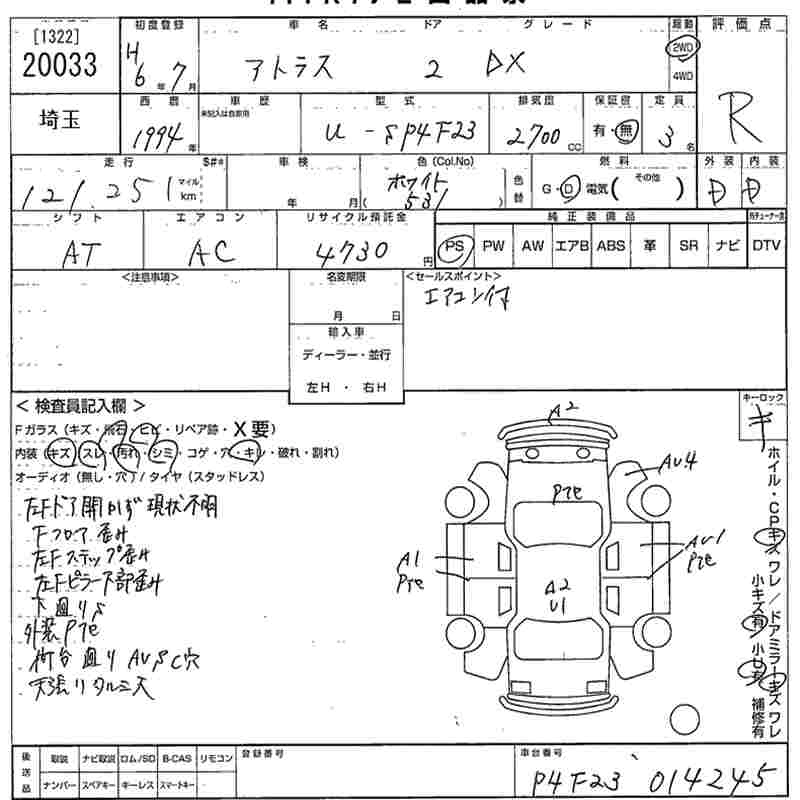 [1322]
20033
初度登録
車名
ドア
グレード
駆動
評価点
H
6年 7月
アトラス
2
DX
2WD
4WD
R
埼玉
西暦
車歴
型式
排気量
保証書
定員
1994年
未記入は自家用
U-SP4F23
2700cc
有・無
3名
走行
$#*
車検
色(Col.No)
燃料
外装
内装
121,251
マイル
km
年 月
ホワイト
531
色替
G・D 電気( その他 )
D
D
シフト
エアコン
リサイクル預託金
純正装備品
AT
AC
4730円
PS PW AW エアB ABS 革 SR ナビ DTV
<注意事項>
名変期限
<セールスポイント>
月 日
エアコン付
輸入車
ディーラー・並行
左H・右H
<検査員記入欄>
キーロック
キ
Fガラス(キズ・飛石・ヒビ・リペア跡・X要)
内装(キズ・スレ・汚れ・シミ・コゲ・穴・キレ・破れ・割れ)
オーディオ(無し・穴)/タイヤ(スタッドレス)
左Fドア開かず 現状不明
Fフロア歪み
左Fステップ歪み
左Fピラー下部歪み
下廻りS
外装Pテヒ
荷台廻りAUSC穴
天張りタルミ大
A2
AU4
Pテヒ
A1
Pテヒ
AU1
Pテヒ
A2
U1
ホイル・CPキズワレ/ドアミラーキズワレ
小キズ有 小U有 補修有
後送品
取説 ナビ取説 ロム/SD B-CAS リモコン
ナンバー スペアキー キーレス スマートキー
登録番号
車台番号
P4F23 014245